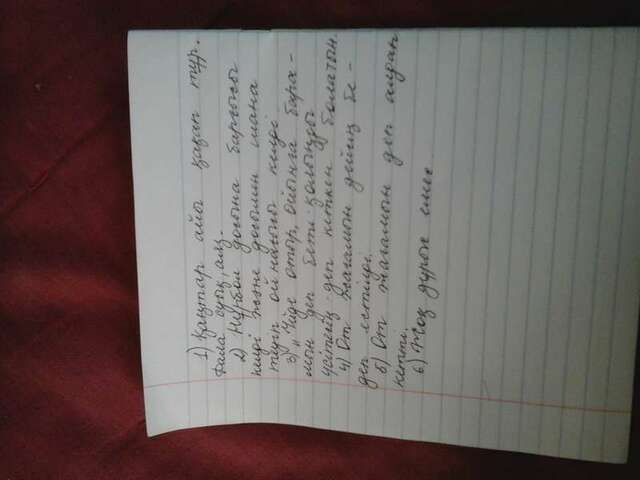 1) Қаңтар айы қақап тұр.
Дала суық, аяз.
2) Нұрбол досына барғысы
келді және досымен шана
теуіп ойнағысы келді
3) „Үйде отыр, ойынға бара-
мын деп бетің-қолыңды
үсітесің" деп кеткен болатын.
4) От жағамын дейсің бе-
деп естілді.
5) От жағамын деп алдап
кетті.
6) Жоқ дұрыс емес